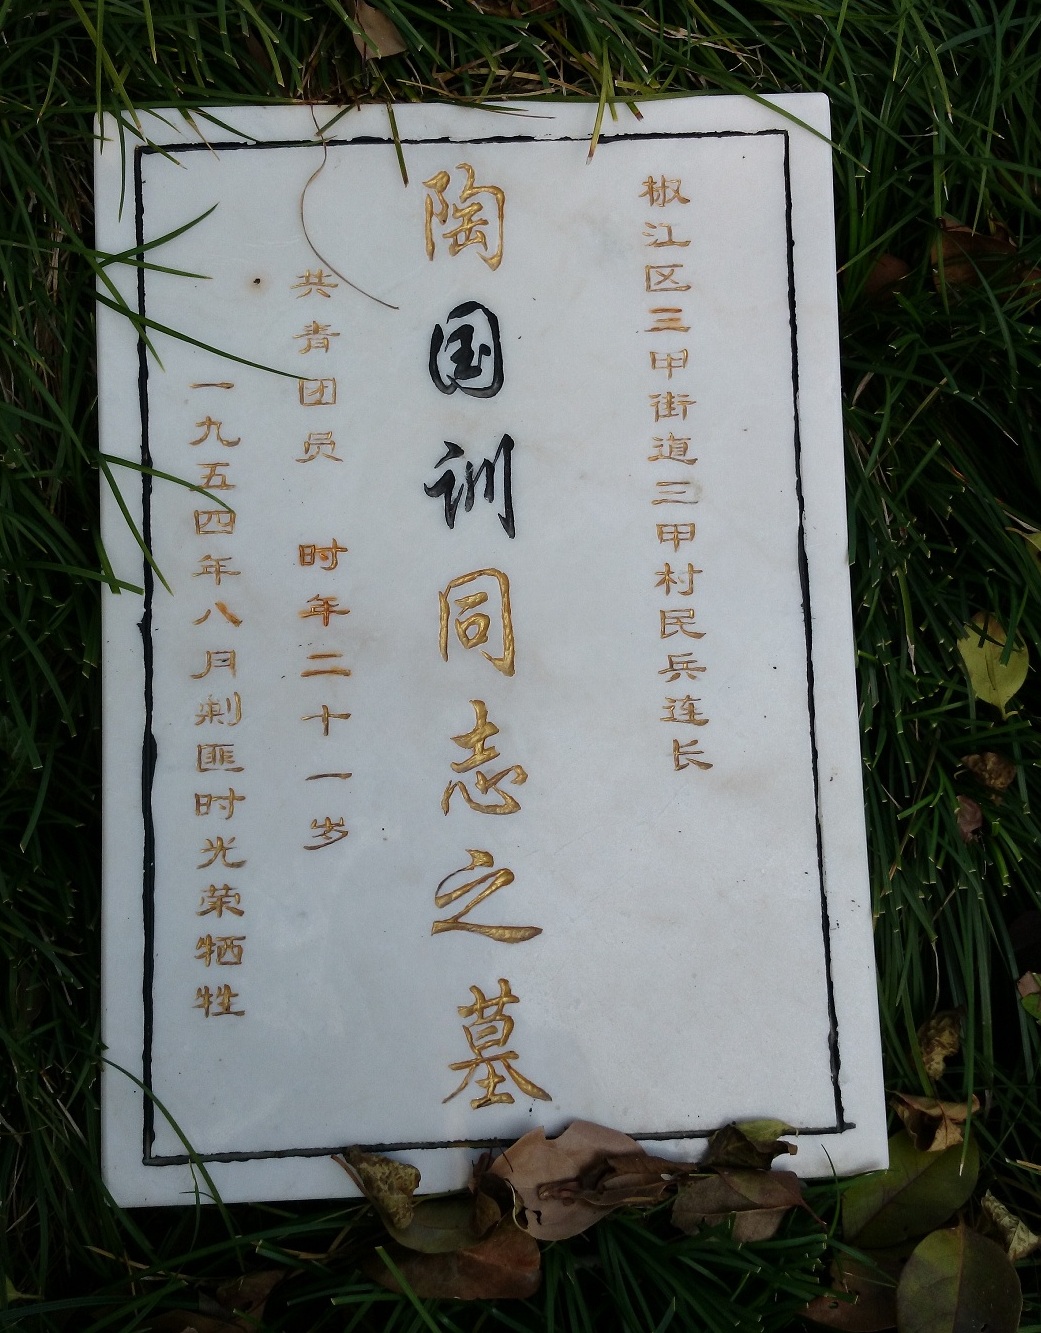 椒江区三甲街道三甲村民兵连长
陶国训同志之墓
共青团员 时年二十一岁
一九五四年八月剿匪时光荣牺牲